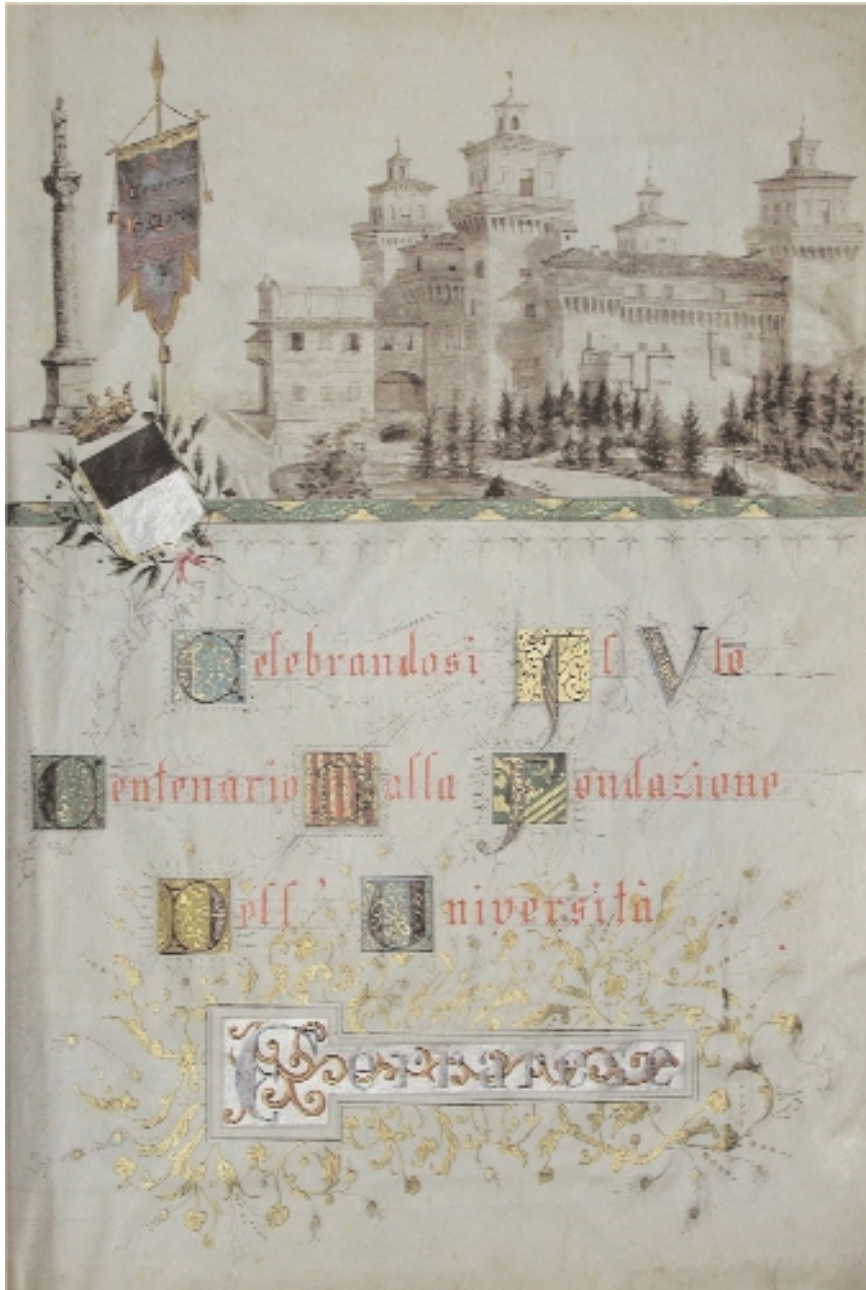 Celebrandosi Il Vto
Centenario Dalla Fondazione
Dell' Università
Ferrarese